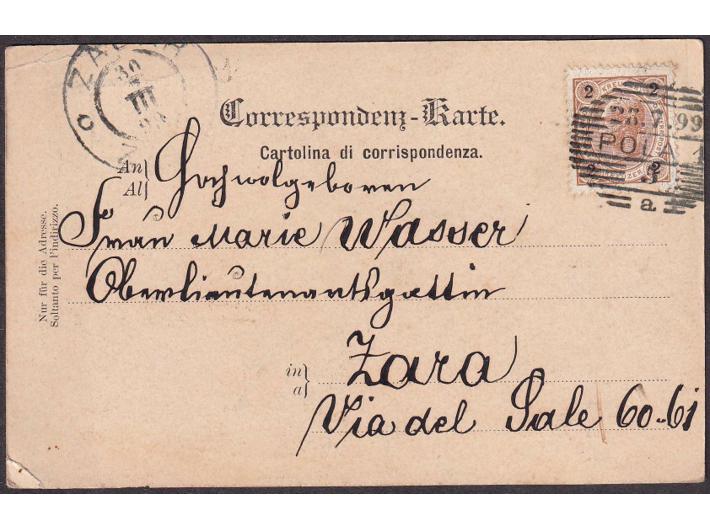 ZARA
30
III
99
2 2
28 99
POL
2 2
a
Correspondenz-Karte.
Cartolina di corrispondenza.
An
Al
Hochwolgeboren
Frau Marie Wasser
Oberlieutenantsgattin
in
a
Zara
Via del Sale 60-61
Nur für die Adresse.
Soltanto per l'indirizzo.